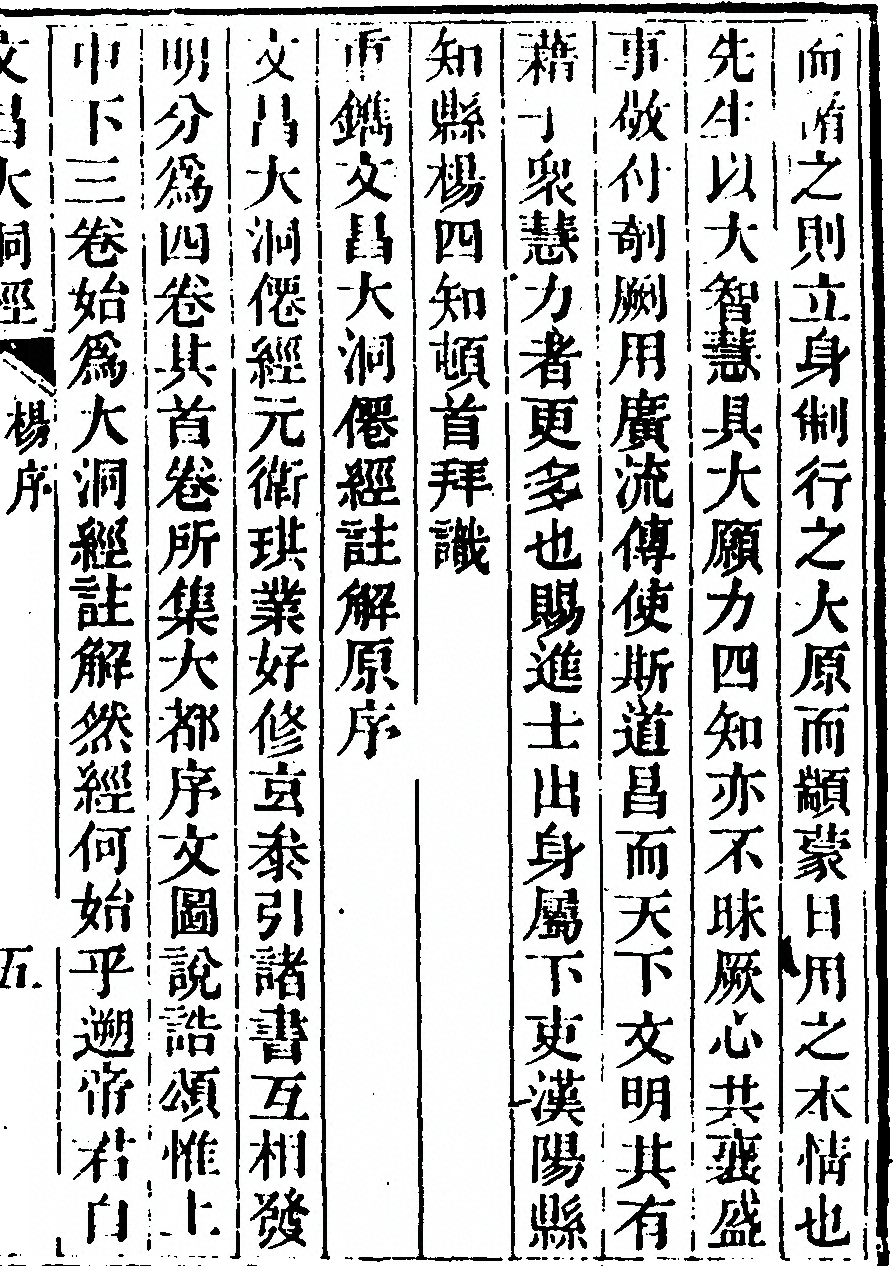 而萠之則立身制行之大原而顓蒙日用之本情也
先生以大智慧具大願力四知亦不昧厥心共襄盛
事敬付剞劂用廣流傳使斯道昌而天下文明其有
藉于衆慧力者更多也賜進士出身屬下吏漢陽縣
知縣楊四知頓首拜識
重鐫文昌大洞僊經註解原序
文昌大洞僊經元衛琪業好修玄黍引諸書互相發
明分爲四卷其首卷所集大都序文圖說誥頌惟上
中下三卷始爲大洞經註解然經何始乎遡帝君自
文昌大洞經 楊序 五